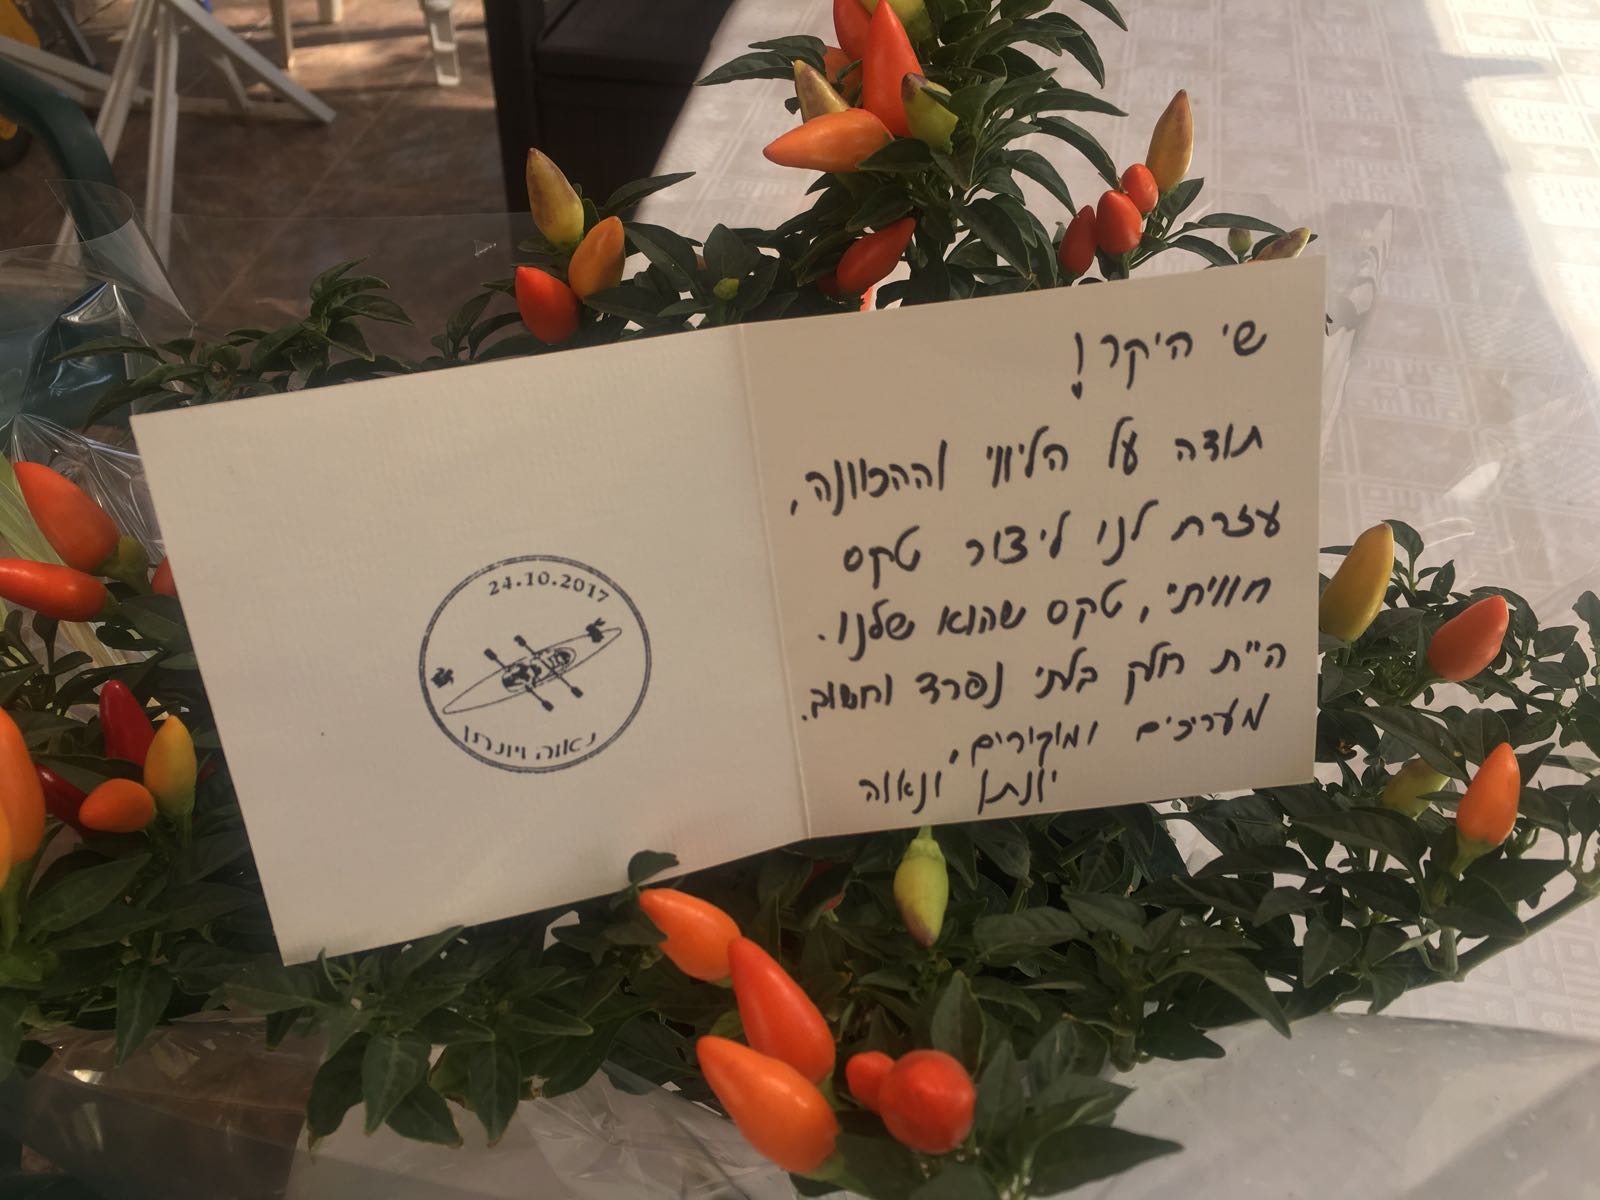 שי היקר!
תודה על הליווי וההכוונה,
עזרת לנו ליצור טקס
חוויתי, טקס שהוא שלנו.
היית חלק בלתי נפרד וחשוב.
מעריכים ומוקירים,
יונתן ונאוה
24.10.2017
נאוה ויונתן